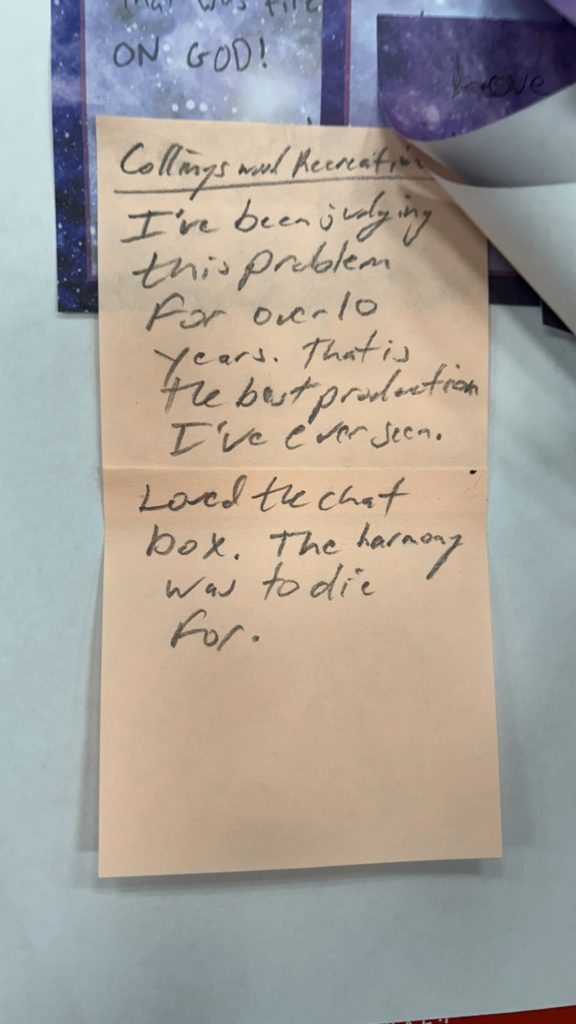 that was fire
ON GOD!
Love
Collingswood Recreation
I've been judging
this problem
for over 10
years. That is
the best production
I've ever seen.
Loved the chat
box. The harmony
was to die
for.